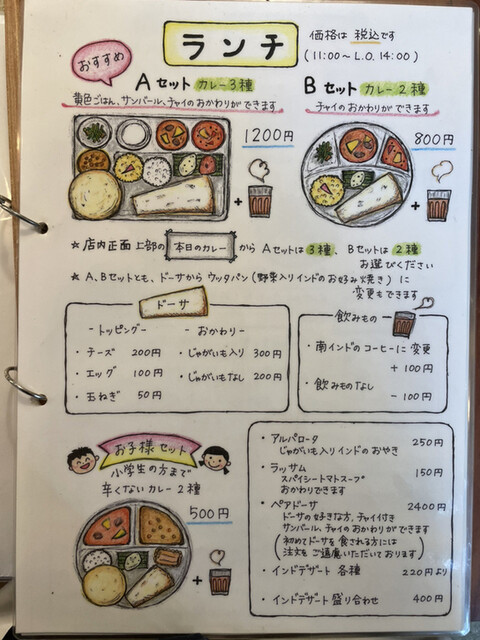 ランチ
価格は 税込です
(11:00〜L.O. 14:00)
おすすめ
Aセット カレー3種
黄色ごはん、サンバール、チャイのおかわりができます
1200円
+
Bセット カレー2種
チャイのおかわりができます
800円
+
★ 店内正面上部の 本日のカレー から Aセットは3種、Bセットは2種
お選びください
★ A、Bセットとも、ドーサから ウッタパン (野菜入りインドのお好み焼き) に
変更もできます
ドーサ
-トッピング-
・チーズ 200円
・エッグ 100円
・玉ねぎ 50円
-おかわり-
・じゃがいも入り 300円
・じゃがいもなし 200円
-飲みもの-
・南インドのコーヒーに変更
+100円
・飲みものなし
-100円
お子様セット
小学生の方まで
辛くないカレー2種
500円
+
・アルパロータ 250円
じゃがいも入りインドのおやき
・ラッサム 150円
スパイシートマトスープ
おかわりできます
・ペアドーサ 2400円
ドーサの好きな方、チャイ付き
サンバール、チャイのおかわりができます
(初めてドーサを食される方には
注文をご遠慮いただいております)
・インドデザート 各種 220円より
・インドデザート 盛り合わせ 400円